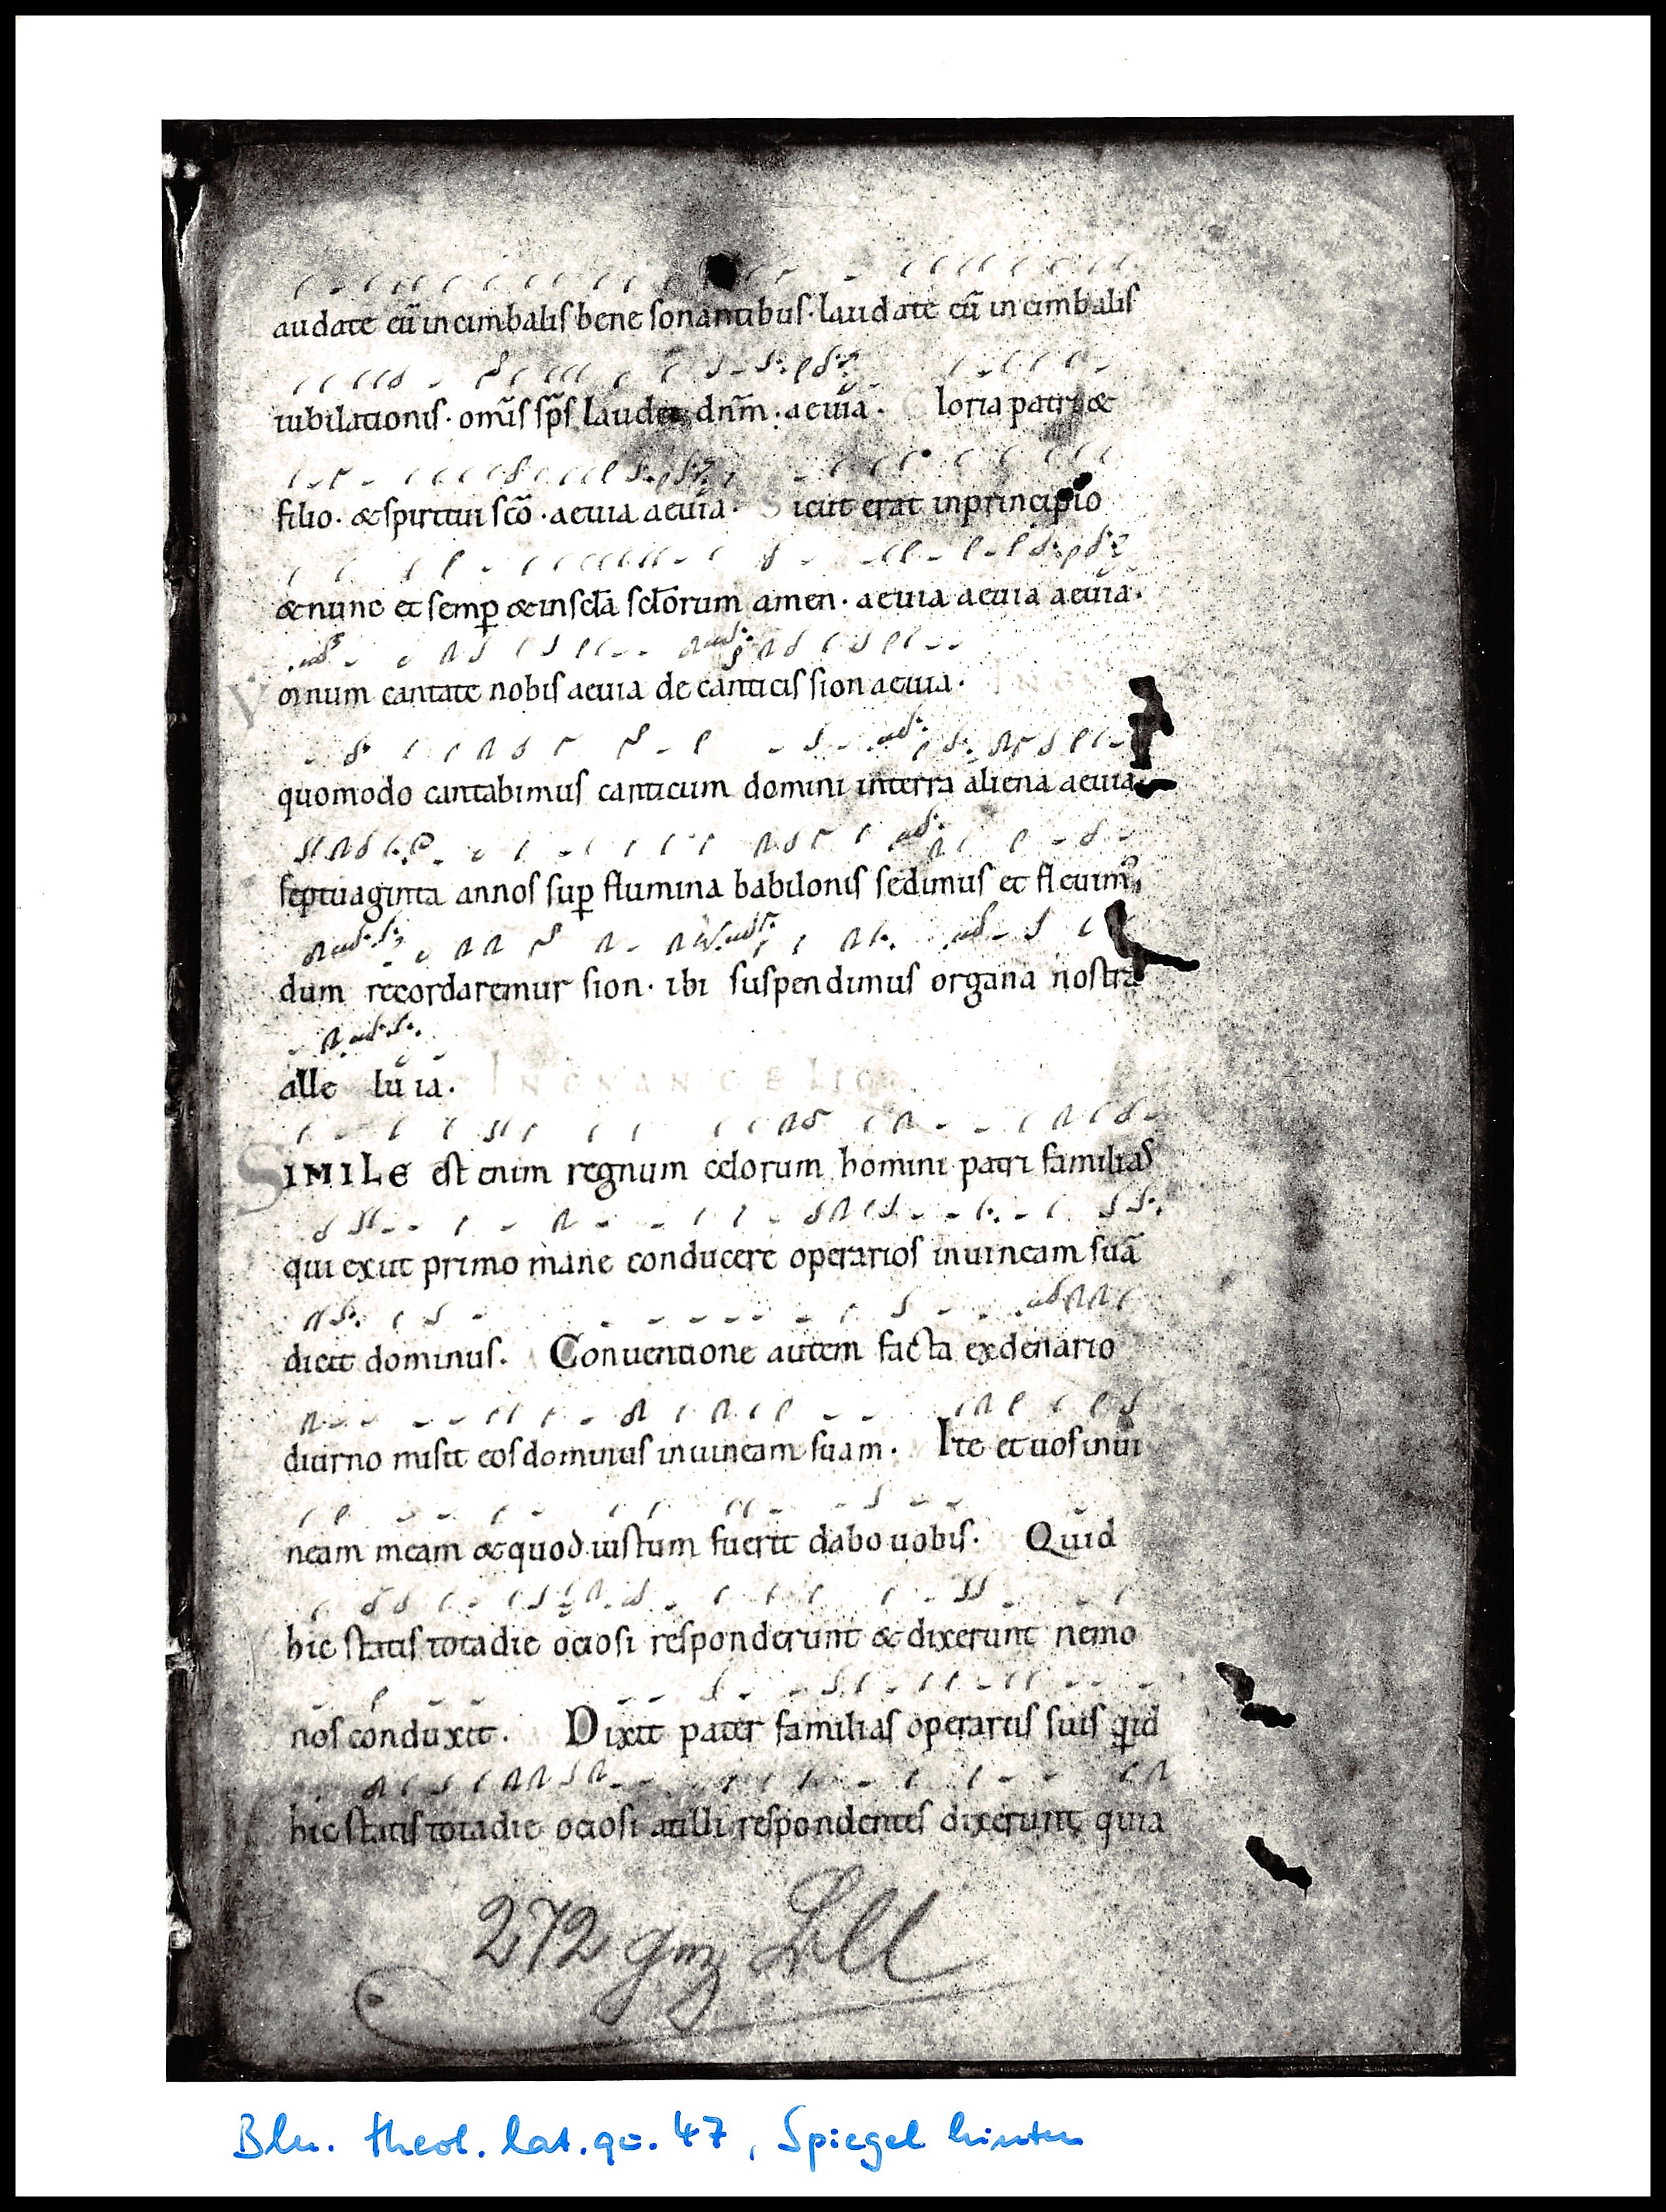 audate eū in cimbalis bene sonantibus · laudate eū in cimbalis
iubilationis · om̄is sp̄s laudet dn̄m · aeuia · Gloria patri &
filio · & spiritui sc̄o · aeuia aeuia · Sicut erat in principio
& nunc et semꝑ & in scl̄a scl̄orum amen · aeuia aeuia aeuia ·
Ymnum cantate nobis aeuia de canticis sion aeuia ·
quomodo cantabimus canticum domini in terra aliena aeuia ·
septuaginta annos suꝑ flumina babilonis sedimus et fleuimꝰ
dum recordaremur sion · ibi suspendimus organa nostra
alle lu ia · IN EVANGELIO
SIMILE est enim regnum celorum homini patri familias
qui exiit primo mane conducere operarios in uineam suā
dicit dominus. Conuentione autem facta ex denario
diurno misit eos dominus in uineam suam · Ite et uos in ui
neam meam & quod iustum fuerit dabo uobis · Quid
hic statis tota die ociosi responderunt & dixerunt nemo
nos conduxit . Dixit pater familias operariis suis qid
hic statis tota die ociosi at illi respondentes dixerunt quia
272 gnz
Bln. theol. lat. qu. 47, Spiegel hinten